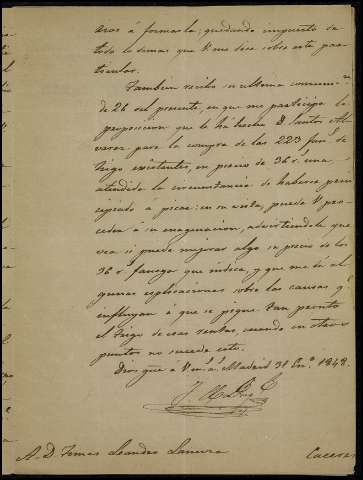 á formarla; quedando impuesto de
todo lo demas que V. me dice sobre este par
ticular.
Tambien recibo su ultima comunic.ⁿ
de 26 del presente, en que me participa la
proposicion que le há hecho D. Santos Al
varez para la compra de las 223 fan.s de
trigo existentes, en precio de 36 r.s una,
atendida la circunstancia de haberse prin
cipiado á picar: en su vista, puede V. pro
ceder á su enagenacion, advirtiendole que
vea si puede mejorar algo el precio de los
36 r.s fanega que indica, y que me dé al
gunas esplicaciones sobre las causas q.e
influyan á que se pique tan pronto
el trigo de esas rentas, cuando en otros
puntos no sucede esto.
Dios gue á V. m.s a.s Madrid 31 En.o 1848.
S. D. Tomas Leandro
Caceres